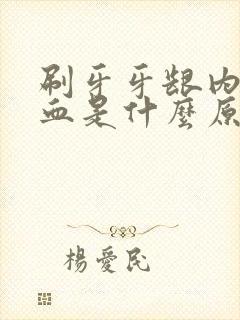 刷牙牙龈内
血是什麼原
楊愛民